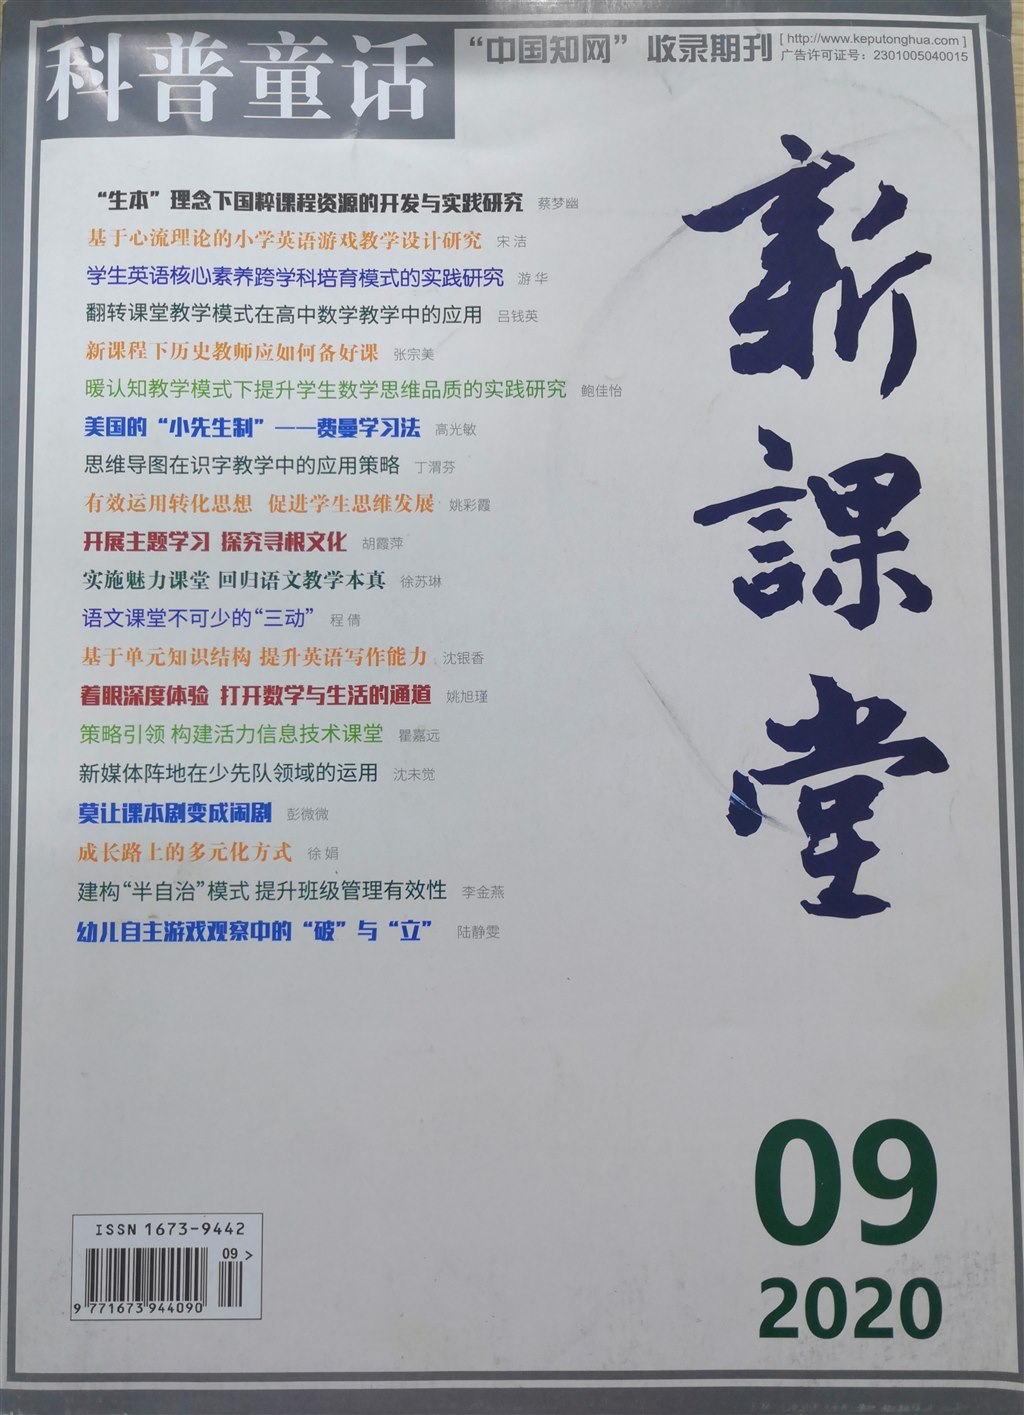 科普童话
“中国知网” 收录期刊
[ http://www.keputonghua.com ]
广告许可证号：2301005040015
新課堂
“生本”理念下国粹课程资源的开发与实践研究 蔡梦幽
基于心流理论的小学英语游戏教学设计研究 宋 洁
学生英语核心素养跨学科培育模式的实践研究 游 华
翻转课堂教学模式在高中数学教学中的应用 吕钱英
新课程下历史教师应如何备好课 张宗美
暖认知教学模式下提升学生数学思维品质的实践研究 鲍佳怡
美国的“小先生制”——费曼学习法 高光敏
思维导图在识字教学中的应用策略 丁渭芬
有效运用转化思想 促进学生思维发展 姚彩霞
开展主题学习 探究寻根文化 胡霞萍
实施魅力课堂 回归语文教学本真 徐苏琳
语文课堂不可少的“三动” 程 倩
基于单元知识结构 提升英语写作能力 沈银香
着眼深度体验 打开数学与生活的通道 姚旭瑾
策略引领 构建活力信息技术课堂 瞿嘉远
新媒体阵地在少先队领域的运用 沈未觉
莫让课本剧变成闹剧 彭微微
成长路上的多元化方式 徐 娟
建构“半自治”模式 提升班级管理有效性 李金燕
幼儿自主游戏观察中的“破”与“立” 陆静雯
09
2020
ISSN 1673-9442
09 >
9 771673 944090